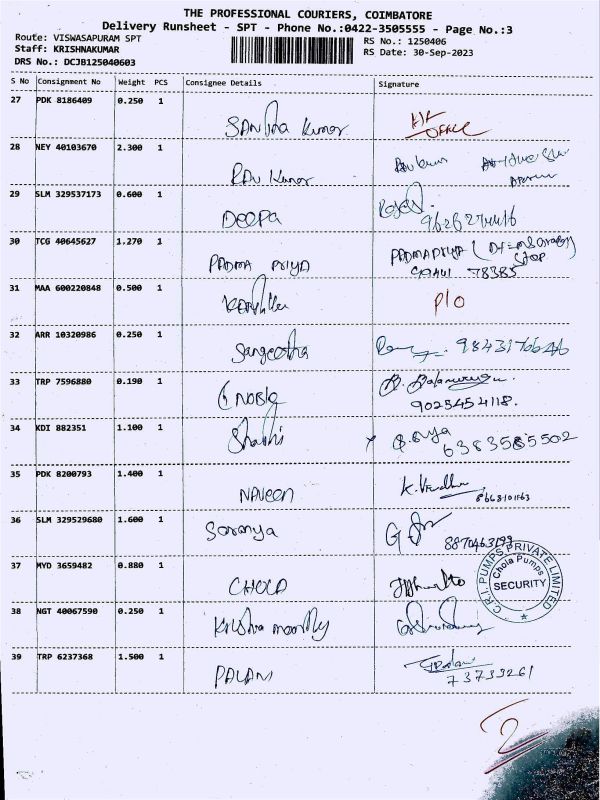 THE PROFESSIONAL COURIERS, COIMBATORE
Delivery Runsheet - SPT - Phone No.:0422-3505555 - Page No.:3
Route: VISWASAPURAM SPT
RS No.: 1250406
Staff: KRISHNAKUMAR
RS Date: 30-Sep-2023
DRS No.: DCJB125040603
S No Consignment No Weight PCS Consignee Details Signature
27 PDK 8186409 0.250 1
Kumar OFFICE
28 NEY 40103670 2.300 1
Ravi Kumar
29 SLM 329537173 0.600 1
DEEPA
30 TCG 40645627 1.270 1
PADMA PRIYA PADMAPRIYA
STOP
78385
31 MAA 600220848 0.500 1
P/O
32 ARR 10320986 0.250 1
Sangeetha
33 TRP 7596880 0.190 1
9025454118.
34 KDI 882351 1.100 1
Shashi 6383585502
35 PDK 8200793 1.400 1
NAVEEN
36 SLM 329529680 1.600 1
Soranya 8870463199
37 MYD 3659482 0.880 1
CHOLA
C.R.I. PUMPS PRIVATE LIMITED
Chola Pumps
SECURITY
38 NGT 40067590 0.250 1
Krishna moorthy
39 TRP 6237368 1.500 1
PALANI
2